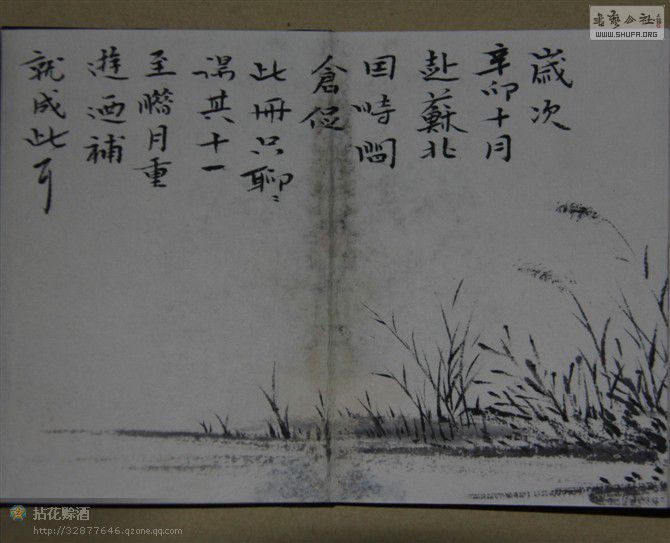 歲次
辛卯十月
赴蘇北
因時間
倉促
此冊只聊〻
得其十一
至臘月重
遊迺補
就成此耳
书艺公社
WWW.SHUFA.ORG
拈花赊酒
http://32877646.qzone.qq.com